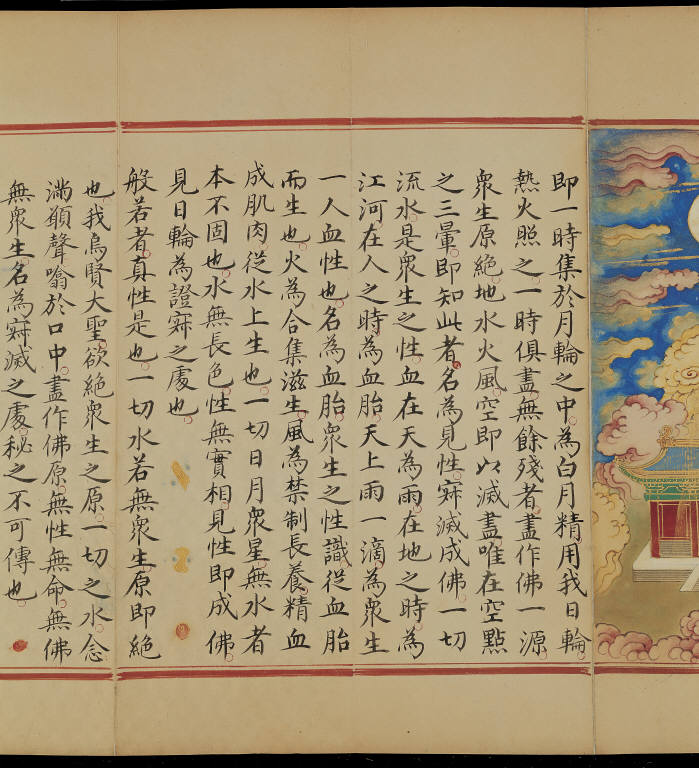 即一時集於月輪之中。為白月精用我日輪。
熱火照之。一時俱盡。無餘殘者。盡作佛一源。
眾生原絕。地水火風。空即以滅盡唯在空點
之三暈。即知此者。名為見性。寂滅成佛。一切
流水。是眾生之性。血在天為雨。在地之時。為
江河。在人之時為血胎。天上雨一滴。為眾生
一人血性也。名為血胎眾生之性識。從血胎
而生也。火為合集滋生。風為禁制長養。精血
成肌肉從水上生也。一切日月眾星。無水者
本不固也。水無長色。性無實相。見性即成佛。
見日輪為證寂之處也。
般若者。真性是也。一切水若無眾生原即絕
也。我烏賢大聖。欲絕眾生之原。一切之水。念
滿頞聲噏於口中。盡作佛原。無性無命。無佛
無眾生。名為寂滅之處。秘之不可傳也。